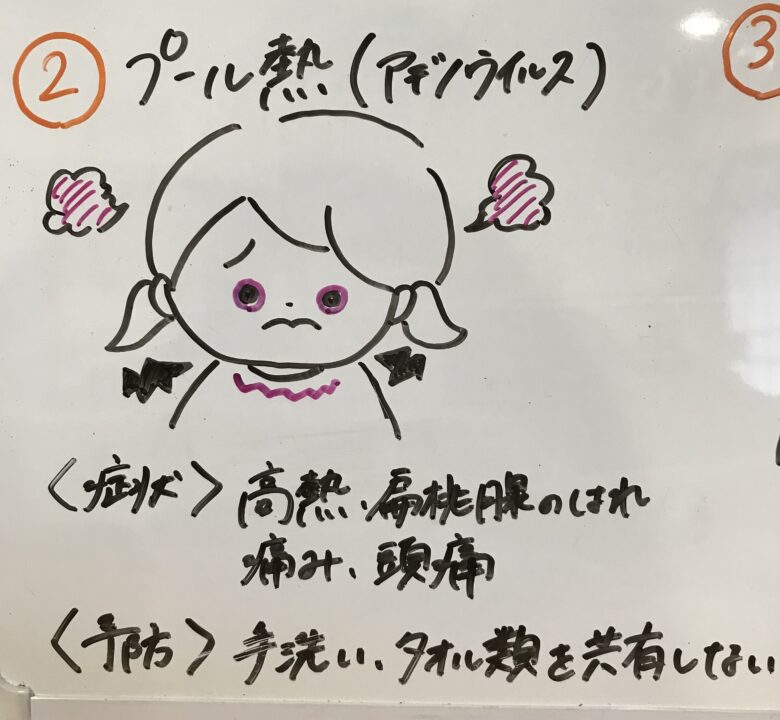 ② プール熱(アデノウイルス)
③
〈症状〉高熱、扁桃腺のはれ
痛み、頭痛
〈予防〉手洗い、タオル類を共有しない